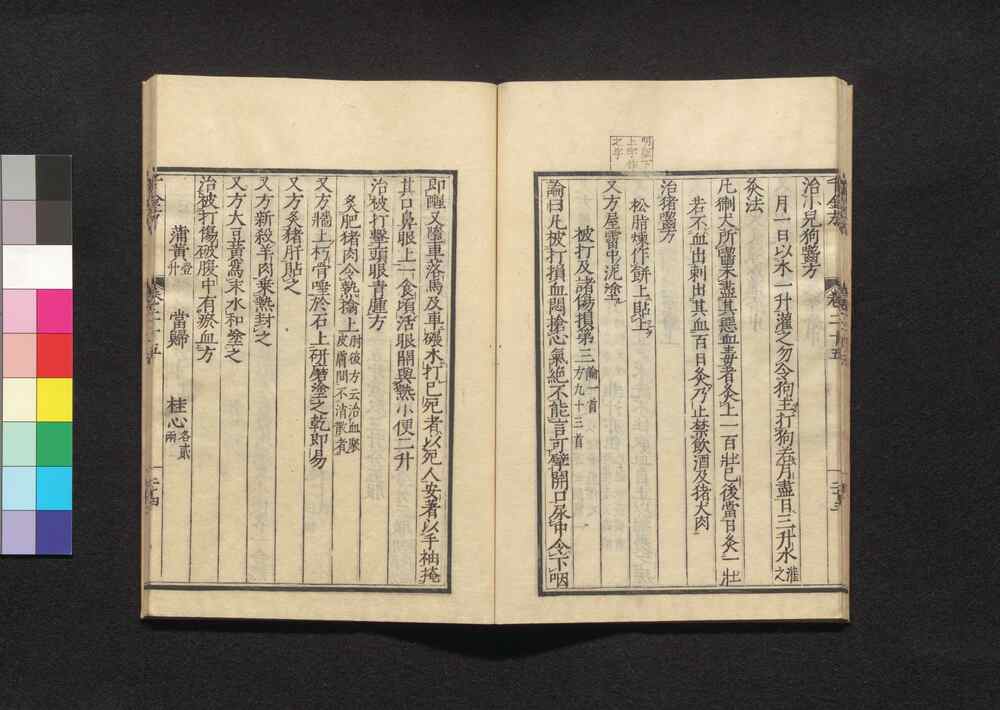 治小兒狗齧方
月一日以水一升灌之勿令狗主打狗若月盡日三升水灌之
灸法
凡猘犬所齧未盡其惡血毒者灸上一百壯已後當日灸一壯
若不血出刺出其血百日灸乃止禁飲酒及猪犬肉
治猪齧方
松脂煉作餅上貼上
又方屋霤中泥塗
被打及諸傷損第三 論一首 方九十三首
論曰凡被打損血悶搶心氣絶不能言可擘開口尿中令下咽
即醒又墮車落馬及車碾木打已死者以死人安著以手袖掩
其口鼻眼上一食頃活眼開與熱小便二升
治被打擊頭眼青腫方
炙肥猪肉令熱搨上 肘後方云治血聚皮膚間不消散者
又方牆上朽骨唾於石上研磨塗之乾即易
又方炙猪肝貼之
又方新殺羊肉乗熱封之
又方大豆黄爲末水和塗之
治被打傷破腹中有瘀血方
蒲黄壹升 當歸 桂心各貳兩
千金方 卷二十五 二十四